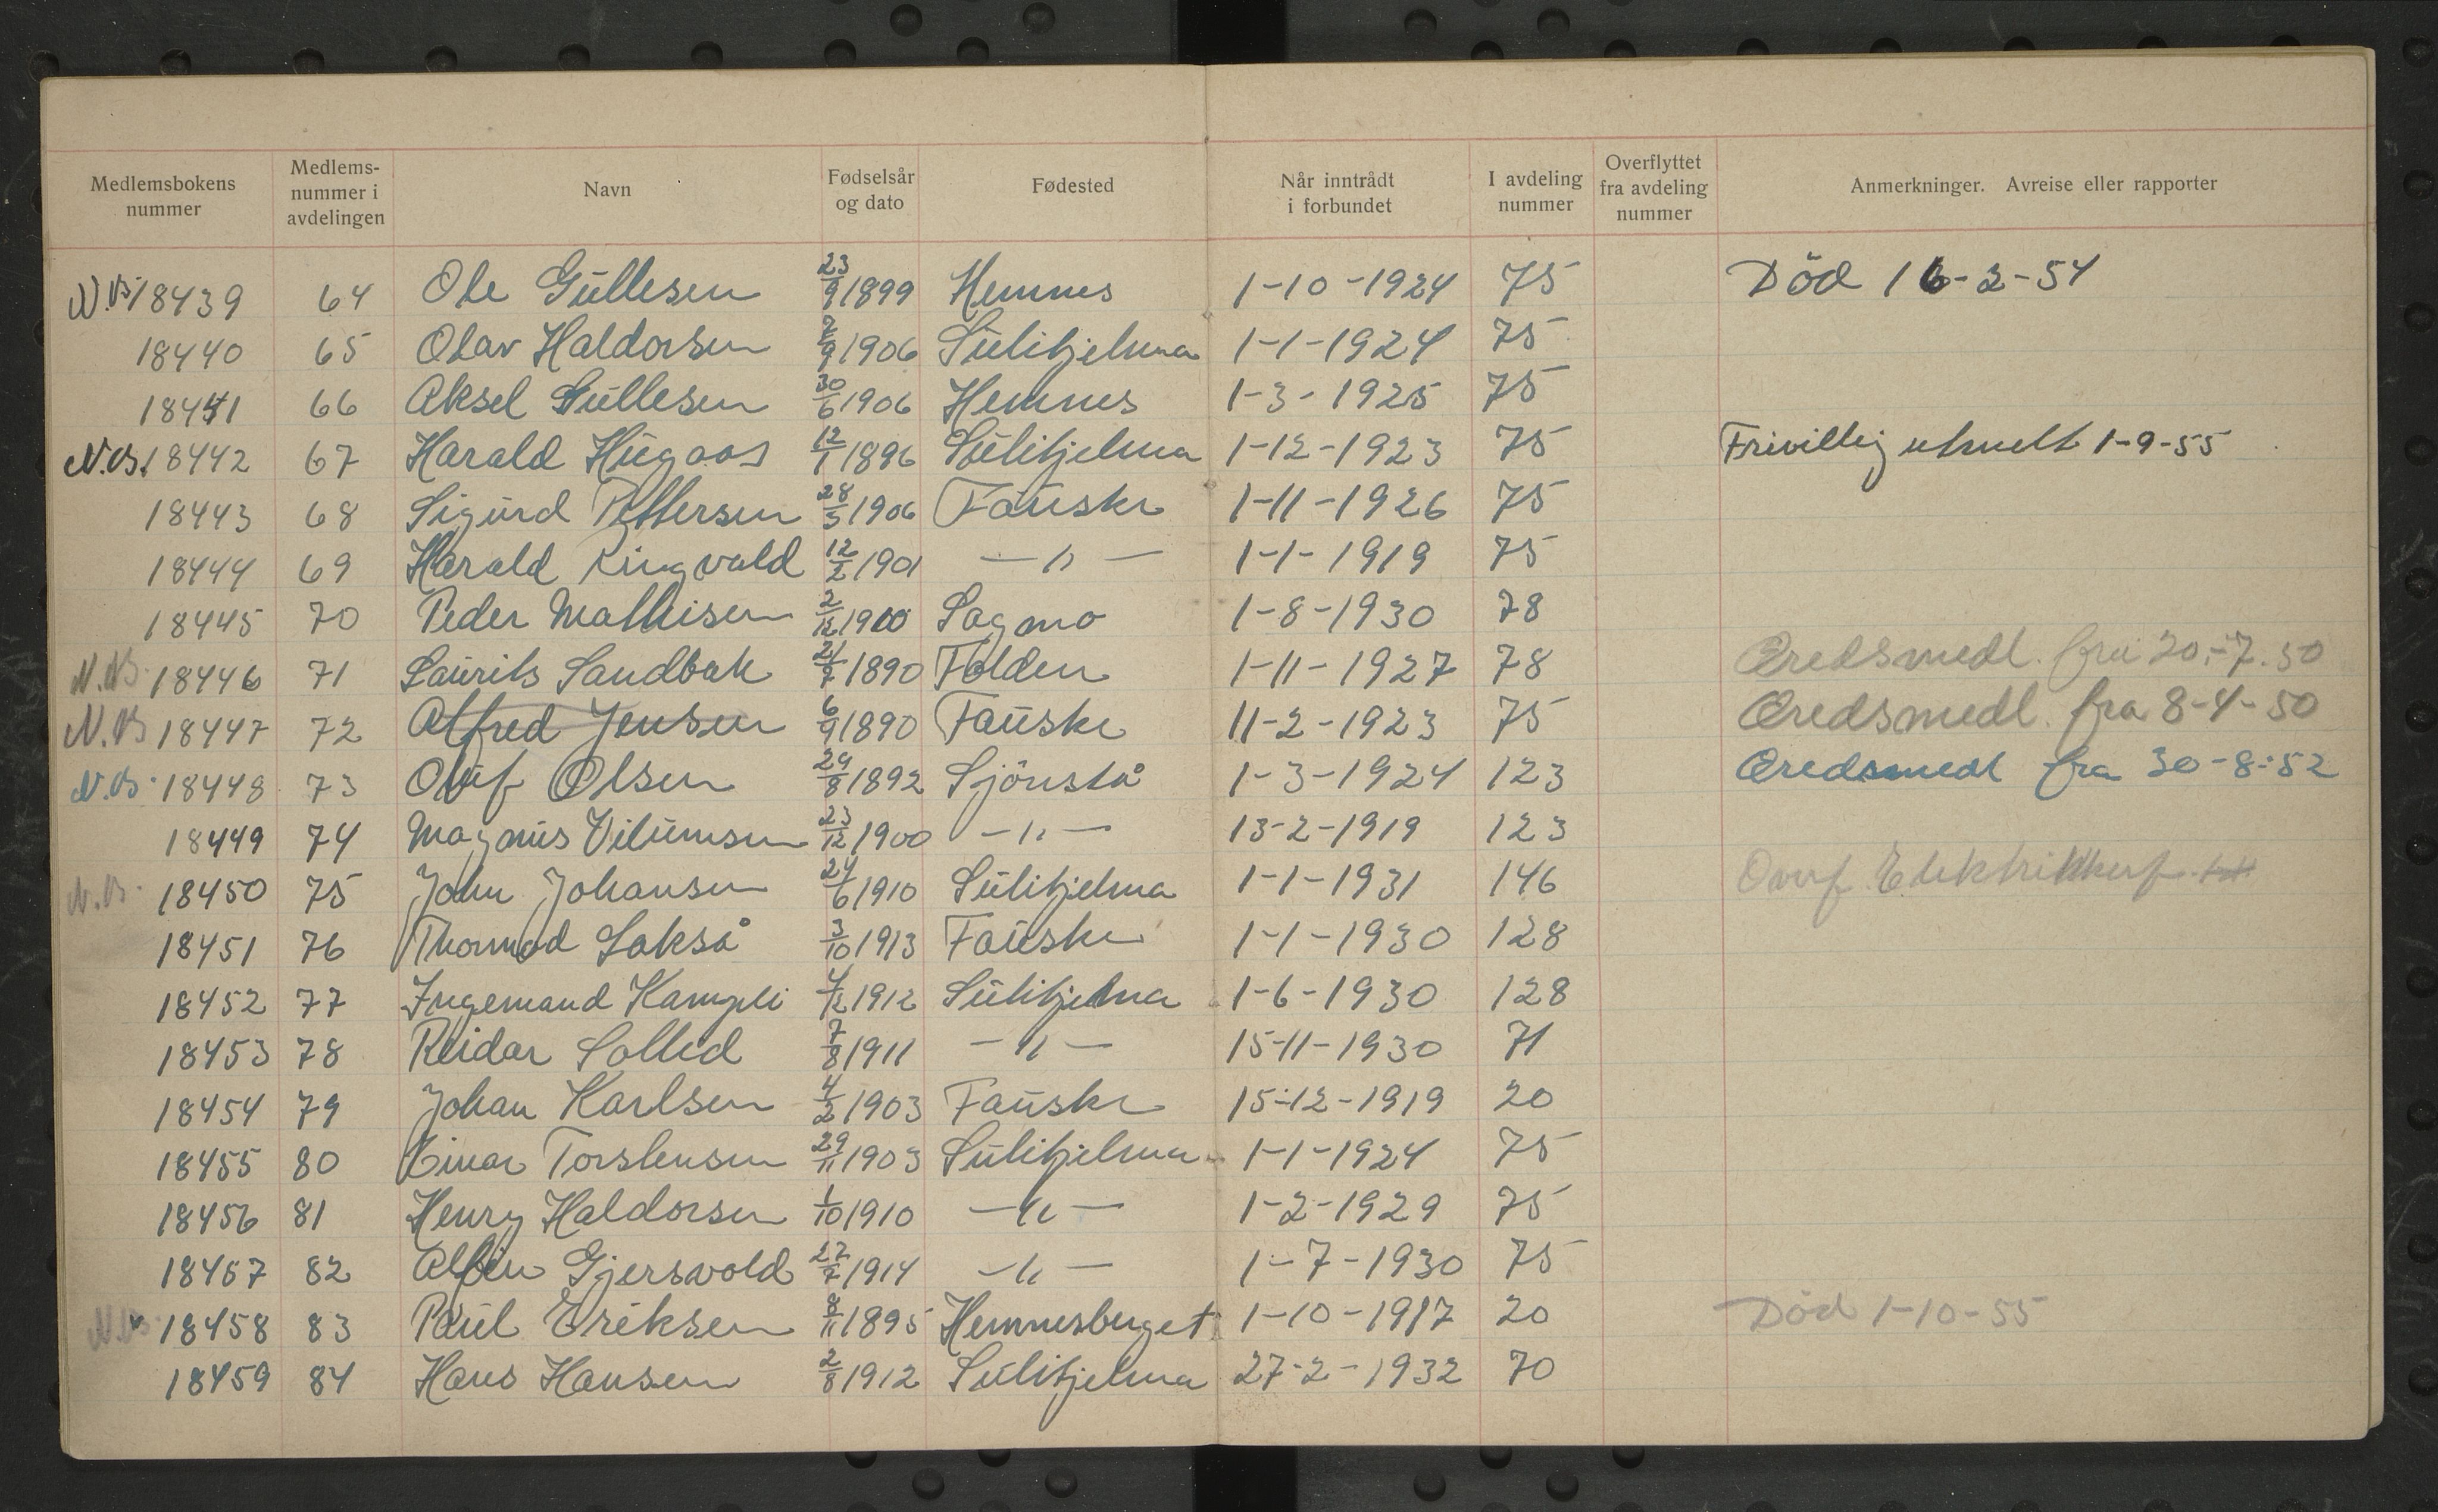 Medlemsbokens nummer Medlems-nummer i avdelingen Navn Fødselsår og dato Fødested Når inntrådt i forbundet I avdeling nummer Overflyttet fra avdeling nummer Anmerkninger. Avreise eller rapporter
N.B. 18439 64 Ole Gullesen 23/9 1899 Hemnes 1-10-1924 75 Død 16-2-54
18440 65 Olav Haldorsen 7/9 1906 Sulitjelma 1-1-1924 75
18441 66 Aksel Gullesen 30/6 1906 Hemnes 1-3-1925 75
N.B. 18442 67 Harald Hugaas 12/1 1896 Sulitjelma 1-12-1923 75 Frivillig utmelt 1-9-55
18443 68 Sigurd Pettersen 28/3 1906 Fauske 1-11-1926 75
18444 69 Harald Ringvald 12/2 1901 —"— 1-1-1919 75
18445 70 Peder Mathisen 2/12 1900 Sagmo 1-8-1930 78
N.B. 18446 71 Laurits Sandbak 21/7 1890 Folden 1-11-1927 78 Æredsmedl. fra 20-7.50
N.B 18447 72 Alfred Jensen 6/9 1890 Fauske 11-2-1923 75 Æredsmedl. fra 8-4-50
N.B. 18448 73 Oluf Olsen 29/8 1892 Sjönstå 1-3-1924 123 Æredsmedl fra 30-8-52
18449 74 Magnus Vilumsen 23/12 1900 —"— 13-2-1919 123
N.B. 18450 75 John Johansen 24/6 1910 Sulitjelma 1-1-1931 146 Overf. Elektrikkerf.
18451 76 Thormod Lakså 3/10 1913 Fauske 1-1-1930 128
18452 77 Ingemand Kampli 4/12 1912 Sulitjelma 1-6-1930 128
18453 78 Reidar Solled 7/8 1911 —"— 15-11-1930 71
18454 79 Johan Karlsen 4/2 1903 Fauske 15-12-1919 20
18455 80 Einar Torstensen 29/11 1903 Sulitjelma 1-1-1924 75
18456 81 Henry Haldorsen 1/10 1910 —"— 1-2-1929 75
18457 82 Alfin Gjersvold 27/7 1914 —"— 1-7-1930 75
N.B. 18458 83 Paul Eriksen 8/11 1895 Hemnesberget 1-10-1917 20 Død 1-10-55
18459 84 Hans Hansen 2/8 1912 Sulitjelma 27-2-1932 70